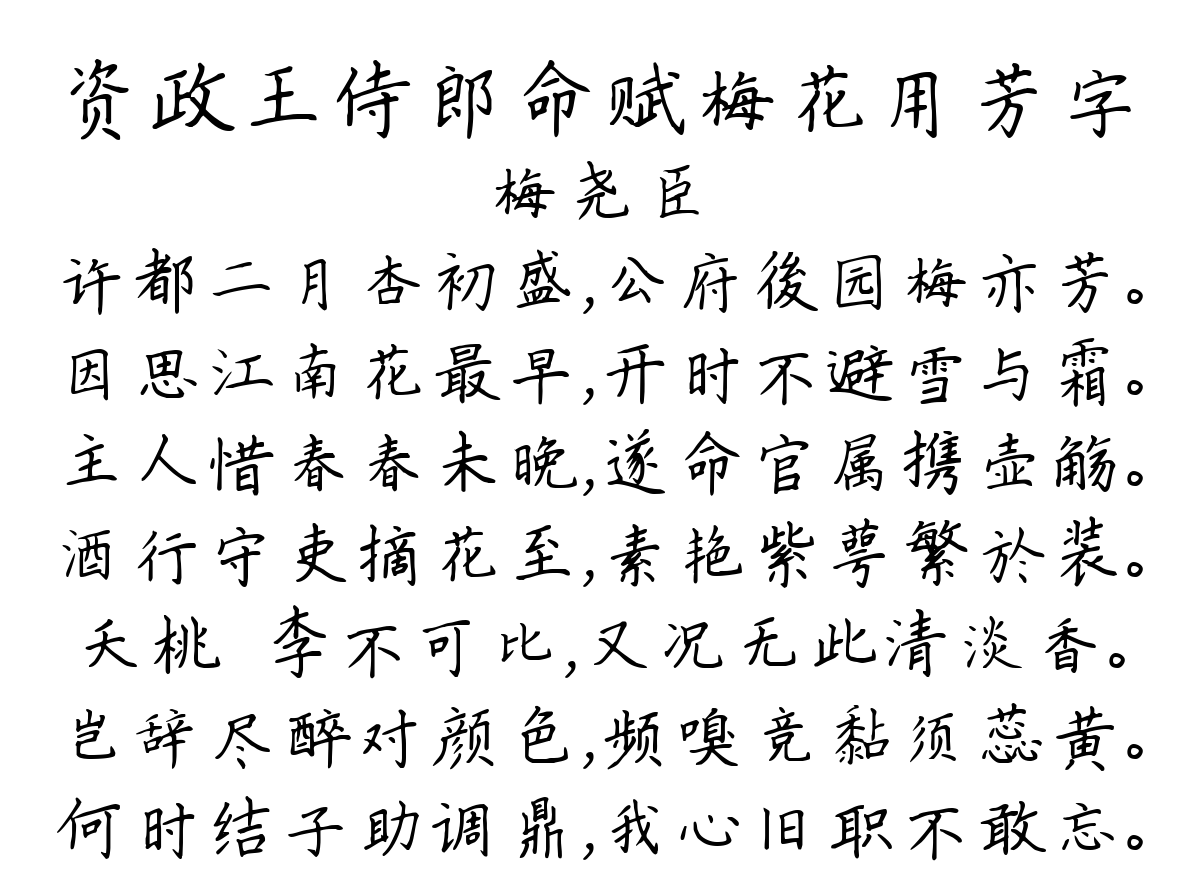 资政王侍郎命赋梅花用芳字
梅尧臣
许都二月杏初盛,公府後园梅亦芳。
因思江南花最早,开时不避雪与霜。
主人惜春春未晚,遂命官属携壶觞。
酒行守吏摘花至,素艳紫萼繁於装。
夭桃 李不可比,又况无此清淡香。
岂辞尽醉对颜色,频嗅竞黏须蕊黄。
何时结子助调鼎,我心旧职不敢忘。